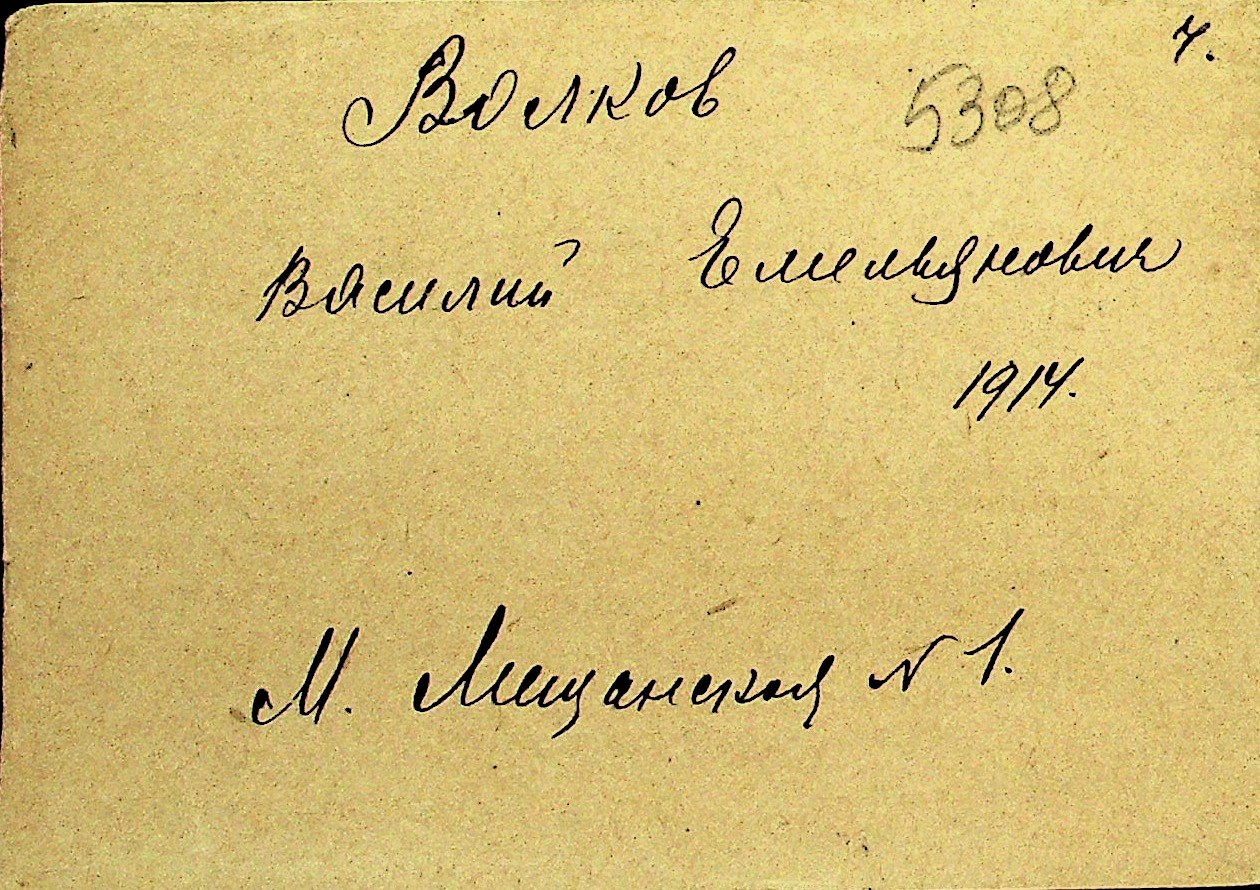 7.
Волков 5308
Василий Емельянович
1914.
М. Мещанская N 1.